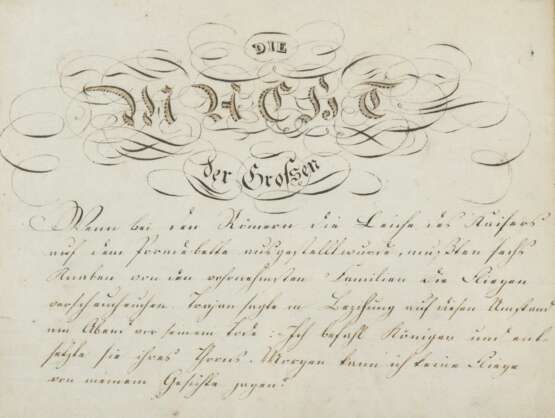 DIE
MACHT
der Grossen
Wenn bei den Römern die Leiche des Kaisers
auf dem Paradebette ausgestellt wurde, mußten sechs
Knaben von den vornehmsten Familien die Fliegen
verscheuchen. Trajan sagte in Beziehung auf diesen Umstand
am Abend vor seinem Tode: Ich befahl Königen und ent-
setzte sie ihres Throns. Morgen kann ich keine Fliege
von meinem Gesichte jagen!